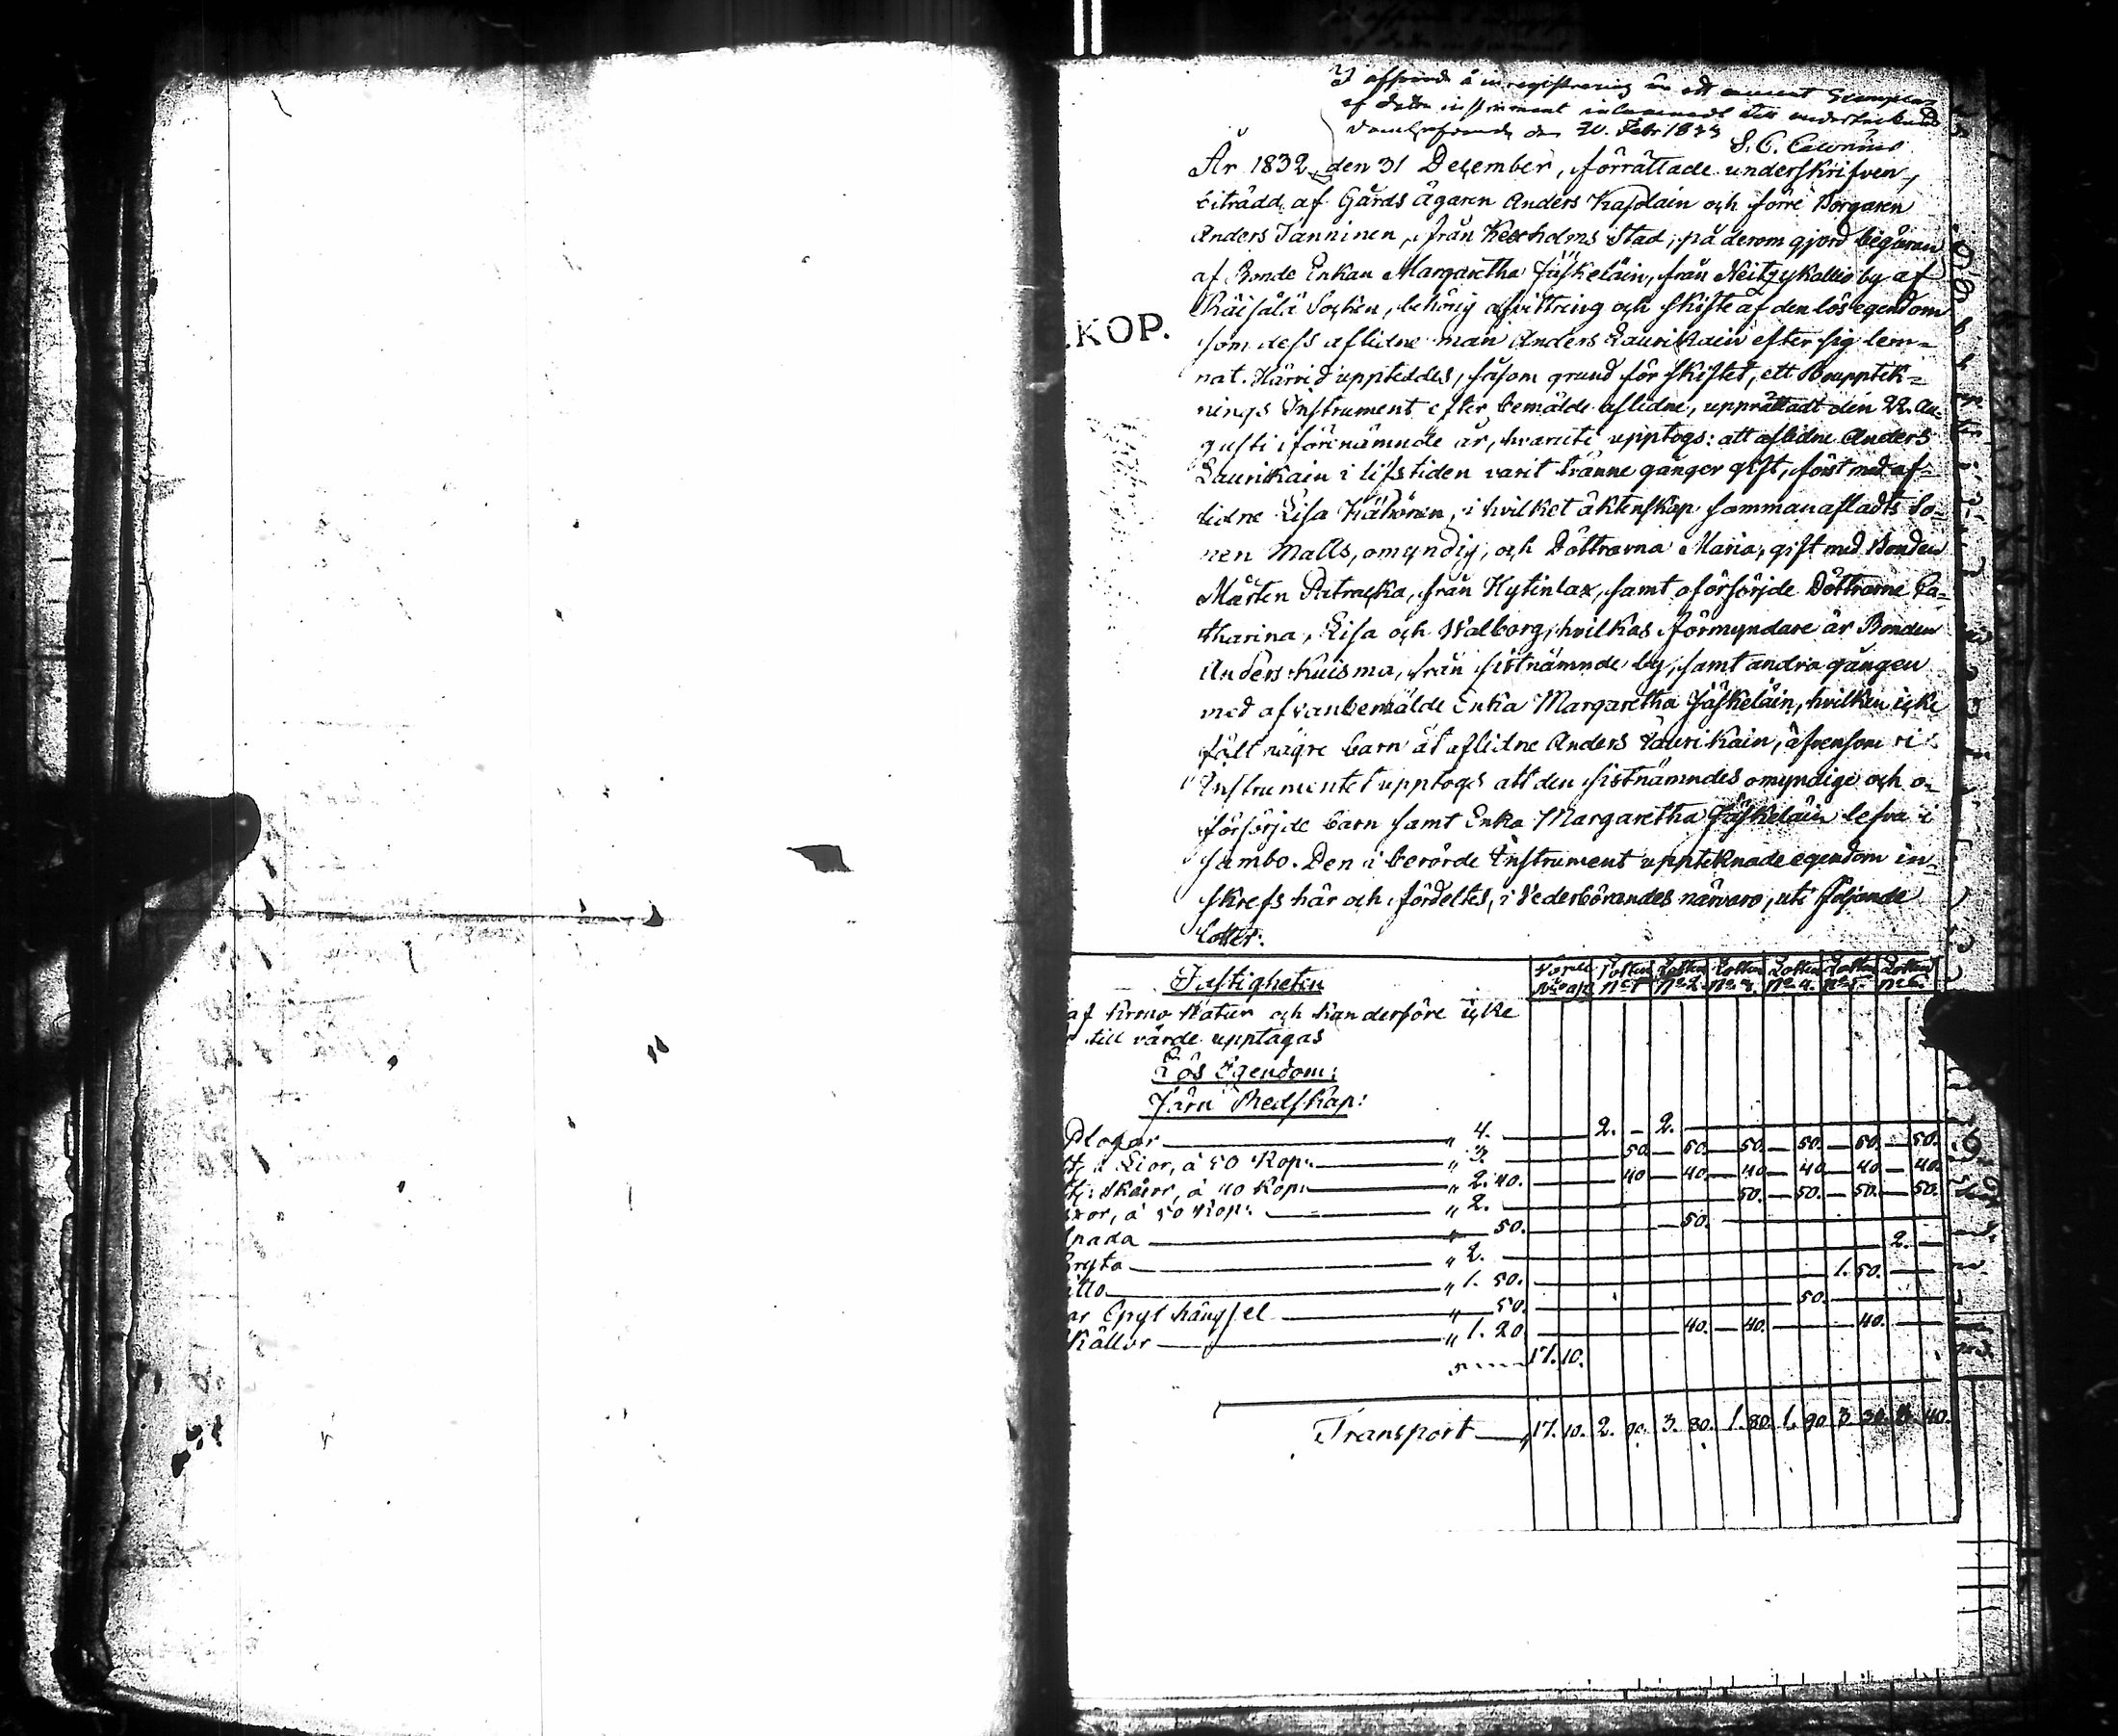 I afseende å inregistrering är ett annat Exemplar
af detta instrument inlemnadt till undertecknad
Domhafvande den 20. Febr 1833
S. C. Calonius
År 1832 den 31 December, förrättade underskrifven,
biträdd af Gårds ägaren Anders Kapolain och förre Borgaren
Anders Tanninen, från Kexholms Stad, på derom gjord begäran
af Bonde Enkan Margaretha Jäskeläin, från Neitzykallio by af
Räisälä Sochen, behörig afvittring och skifte af den lös egendom
KOP.
som dess aflidne man Anders Laurikain efter sig lem-
nat. Härvid uppteddes, såsom grund för skiftet, ett Bouppteck-
nings Instrument efter bemälde aflidne, upprättadt den 22. Au-
gusti i förenämnde år, hvaruti upptogs: att aflidne Anders
Laurikain i lifstiden varit tvänne gånger gift, först med af-
lidne Lisa Kähönen, i hvilket äktenskap sammanafladts So-
nen Matts, omyndig, och Döttrarna Maria, gift med Bonden
Mårten Putracka, från Hytinlax, samt oförsörjde Döttrarne Ca-
tharina, Lisa och Walborg, hvilkas förmyndare är Bonden
Anders Kuisma, från sistnämnde by, samt andra gången
med afvanbemälde Enka Margaretha Jäskeläin, hvilken icke
fält någre barn åt aflidne Anders Laurikain, äfvensom i
Instrumentet upptogs att den sistnämndes omyndige och o-
försörjde barn samt Enka Margaretha Jäskeläin lefva i
sambo. Den i berörde Instrument uppteknade egendom in-
skrefs här och fördeltes, i Vederbörandes närvaro, uti följande
lotter:
Fastigheten Lotten N:o 1 Lotten N:o 2. Lotten N:o 3. Lotten N:o 4. Lotten N:o 5. Lotten N:o 6.
af Krono Natur och kan derföre icke
till värde upptagas
Lös Egendom:
Järn Redskap:
Plogar " 4. 2. 2.
Lior, à 50 Kop: " 3. 50. 50. 50. 50. 50. 50.
Skäror, à 40 Kop: " 2. 40. 40 40. 40 40 40 40.
xor, à 50 Kop: " 2. 50. 50. 50. 50.
pada " 50. 50.
Gryta " 2. 2.
itto " 1. 50. 1. 50.
ar Gryt hängsel " 50. 50.
Källor " 1. 20 40. 40. 40.
17. 10.
Transport 17. 10. 2. 90. 3. 80. 1. 80. 1. 90 3 30. 3. 40.